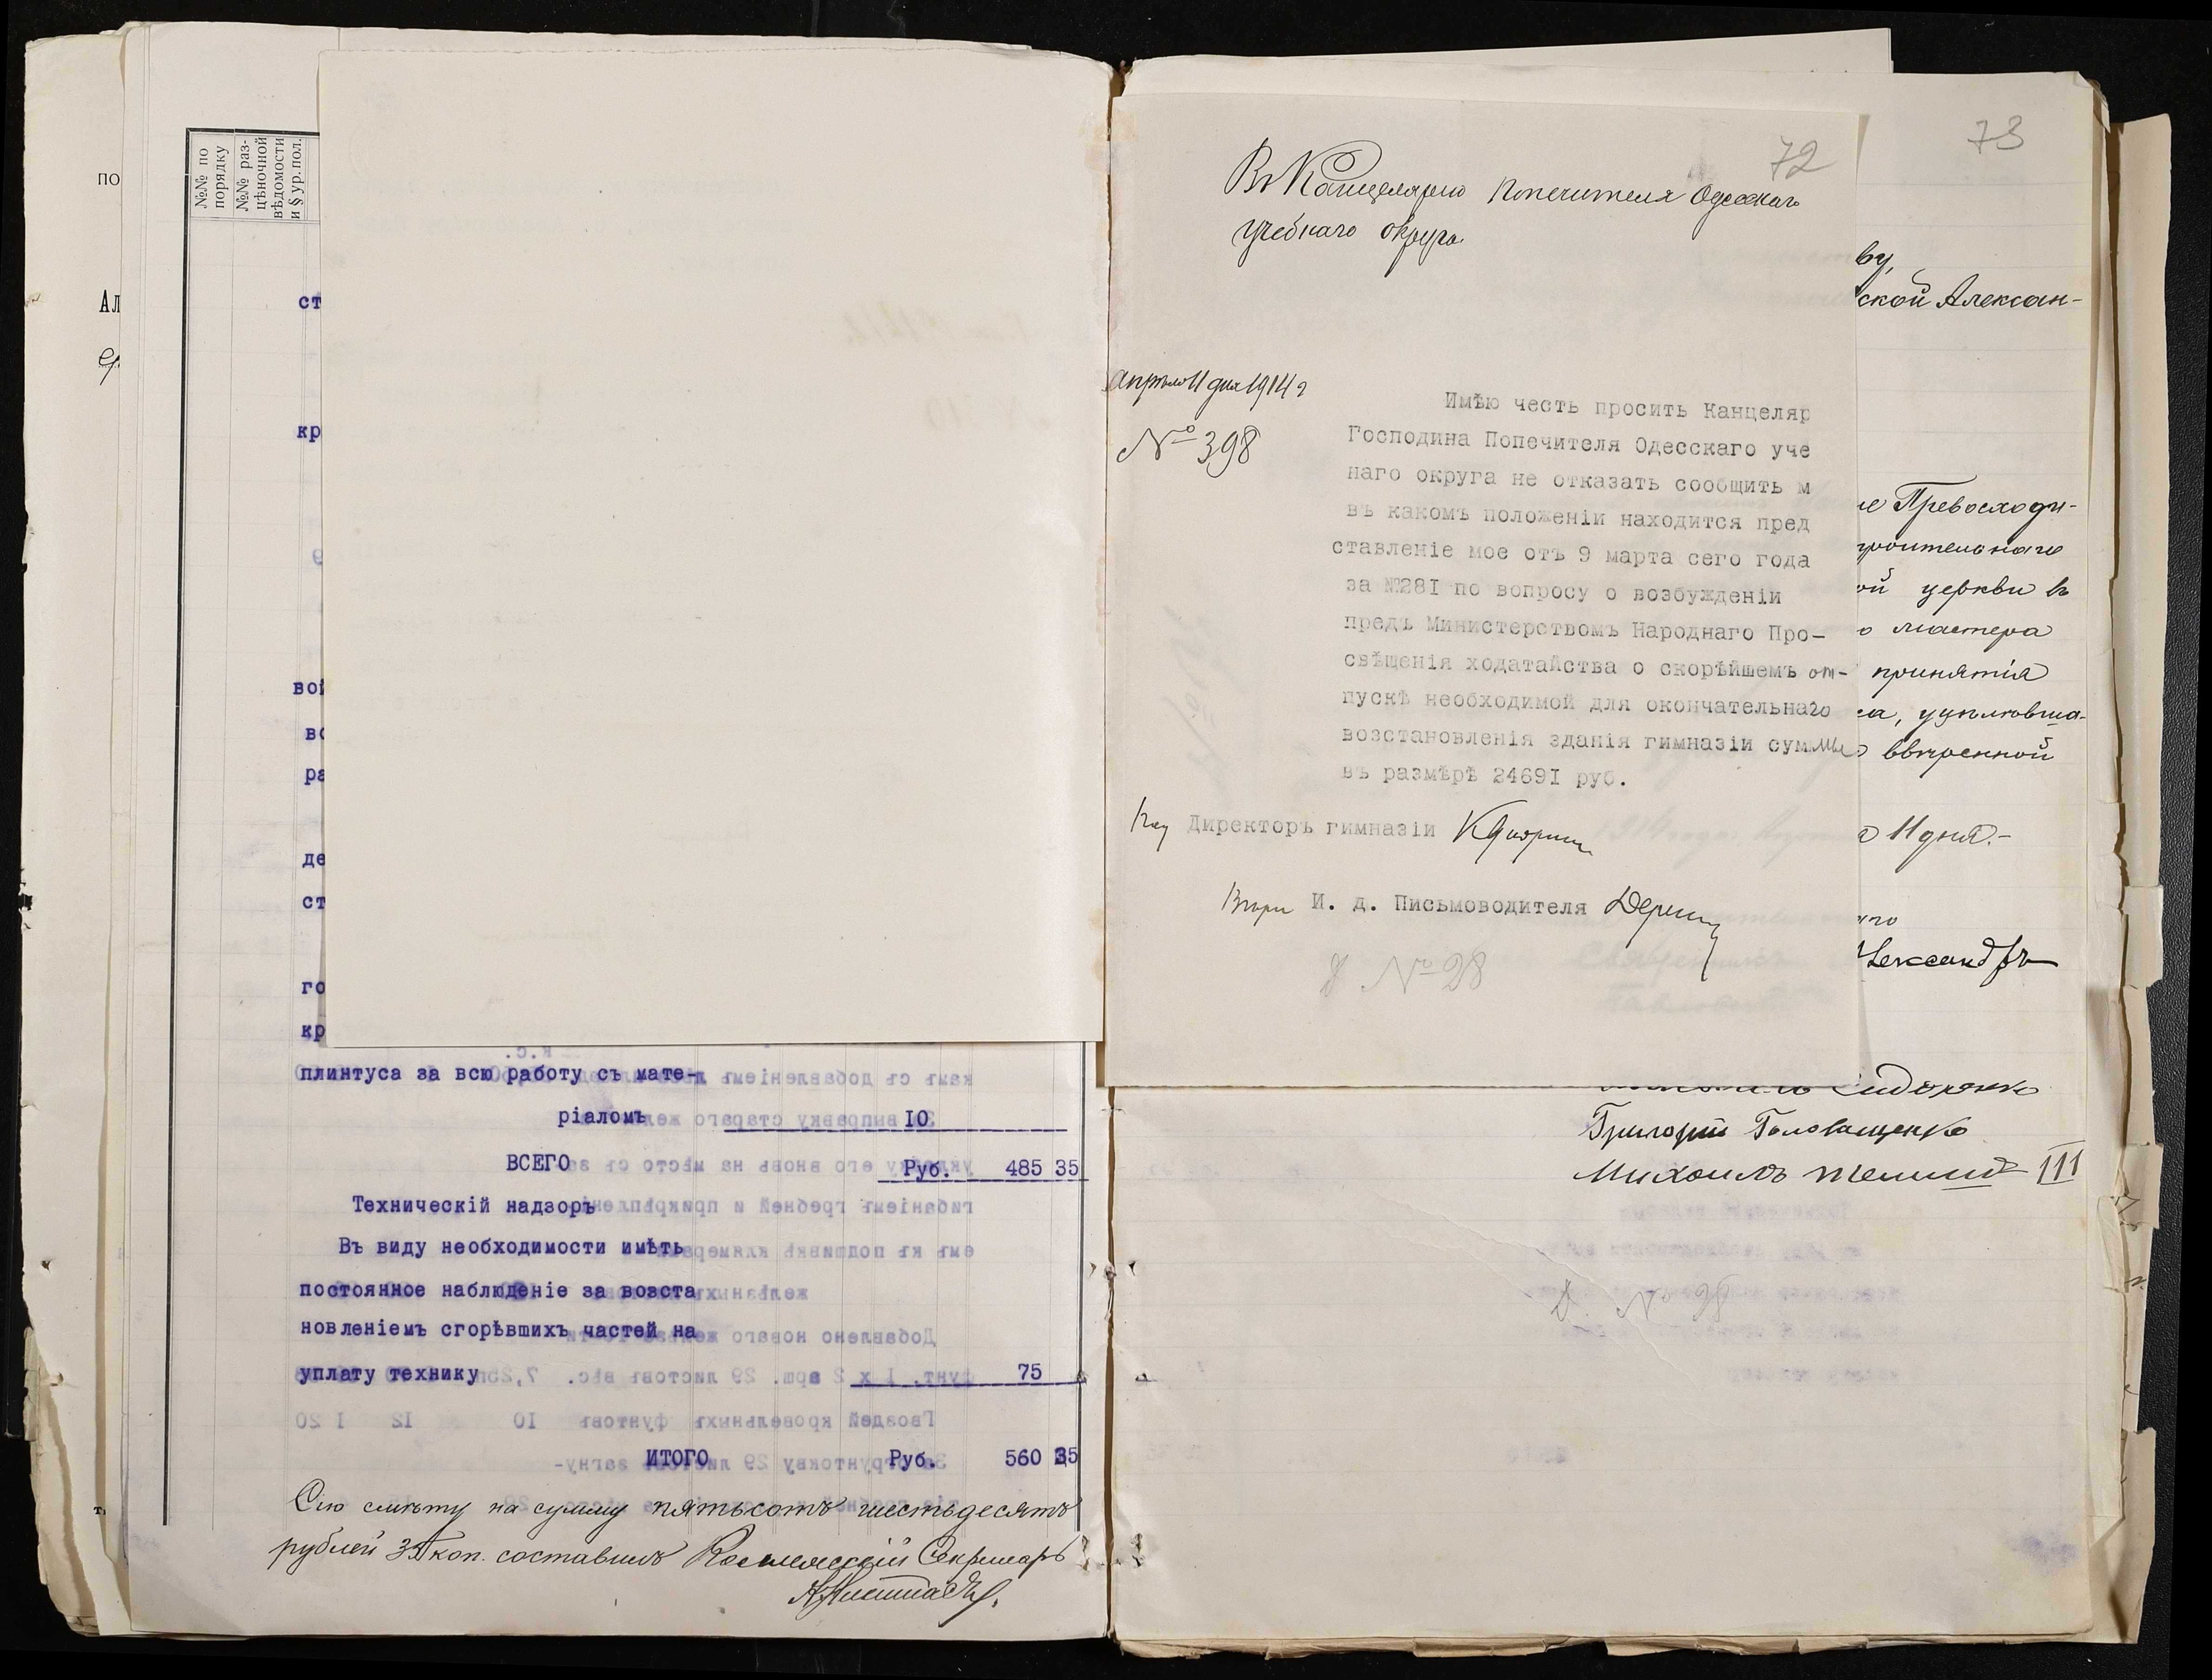 по
Ал
№№ по
порядку
№№ раз-
цѣночной
вѣдомости
и § ур. пол.
ст
кр
вой
во
ра
де
ст
го
кр
плинтуса за всю работу съ мате-
ріаломъ 10
ВСЕГО Руб. 485 35
Техническій надзоръ
Въ виду необходимости имѣть
постоянное наблюденіе за возста
новленіемъ сгорѣвшихъ частей на
уплату технику 75
ИТОГО Руб. 560 35
Сію смѣту на сумму пятьсотъ шестьдесятъ
рублей 35 коп. составилъ Коллежскій Секретарь
72
Въ Канцелярію Попечителя Одесскаго
учебнаго округа.
апрѣля 11 дня 1914 г
№ 398
Имѣю честь просить Канцеляр
Господина Попечителя Одесскаго уче
наго округа не отказать сообщить м
въ какомъ положеніи находится пред
ставленіе мое отъ 9 марта сего года
за №28I по вопросу о возбужденіи
предъ Министерствомъ Народнаго Про-
свѣщенія ходатайства о скорѣйшемъ от-
пускѣ необходимой для окончательнаго
возстановленія зданія гимназіи суммы
въ размѣрѣ 2469I руб.
Директоръ гимназіи
И. д. Письмоводителя
№ 28
73
ву,
ской Алексан-
ше Превосходи-
троительнаго
ой церкви въ
о мастера
принятія
са, уцѣлѣвша-
ввѣренной
11 дня.-
аго
Александръ
Сидоренко
Григорій Головащенко
Михаилъ
III
Д. № 28